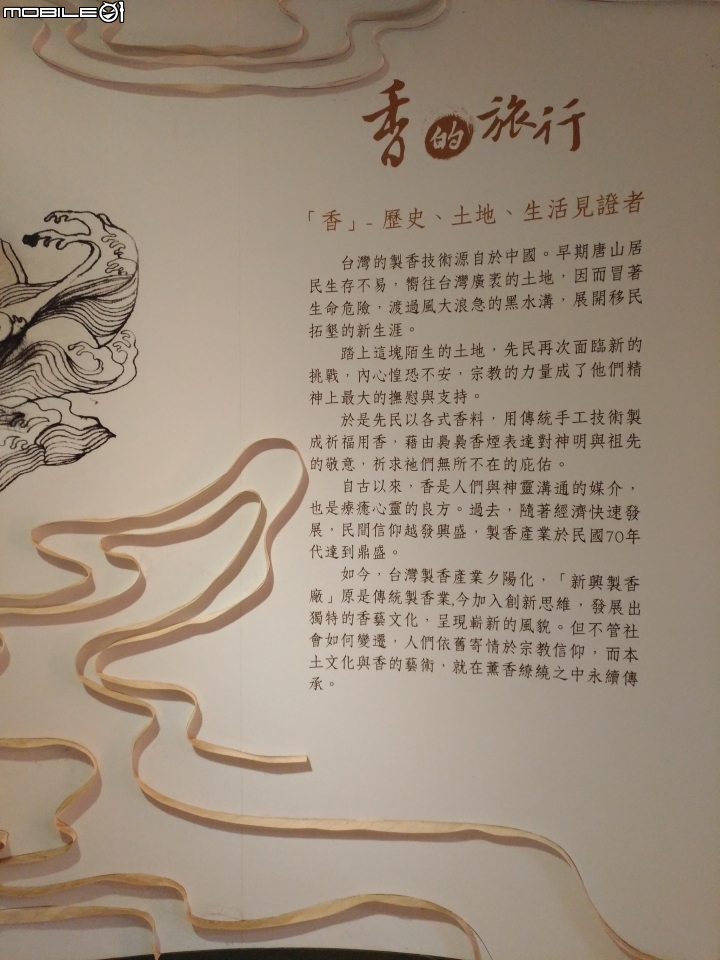 MOBILE01
香的旅行
「香」- 歷史、土地、生活見證者
台灣的製香技術源自於中國。早期唐山居
民生存不易，嚮往台灣廣袤的土地，因而冒著
生命危險，渡過風大浪急的黑水溝，展開移民
拓墾的新生涯。
踏上這塊陌生的土地，先民再次面臨新的
挑戰，內心惶恐不安，宗教的力量成了他們精
神上最大的撫慰與支持。
於是先民以各式香料，用傳統手工技術製
成祈福用香，藉由裊裊香煙表達對神明與祖先
的敬意，祈求祂們無所不在的庇佑。
自古以來，香是人們與神靈溝通的媒介，
也是療癒心靈的良方。過去，隨著經濟快速發
展，民間信仰越發興盛，製香產業於民國70年
代達到鼎盛。
如今，台灣製香產業夕陽化，「新興製香
廠」原是傳統製香業,今加入創新思維，發展出
獨特的香藝文化，呈現嶄新的風貌。但不管社
會如何變遷，人們依舊寄情於宗教信仰，而本
土文化與香的藝術，就在薰香繚繞之中永續傳
承。